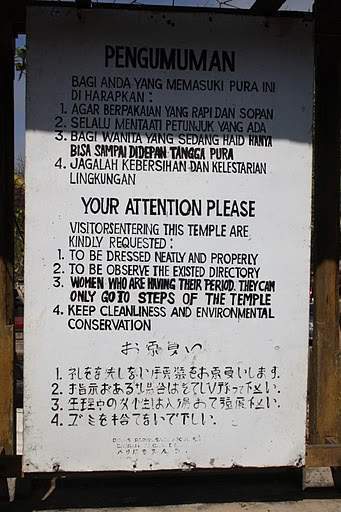 PENGUMUMAN
BAGI ANDA YANG MEMASUKI PURA INI
DI HARAPKAN :
1. AGAR BERPAKAIAN YANG RAPI DAN SOPAN
2. SELALU MENTAATI PETUNJUK YANG ADA
3. BAGI WANITA YANG SEDANG HAID HANYA
BISA SAMPAI DIDEPAN TANGGA PURA
4. JAGALAH KEBERSIHAN DAN KELESTARIAN
LINGKUNGAN
YOUR ATTENTION PLEASE
VISITORSENTERING THIS TEMPLE ARE
KINDLY REQUESTED :
1. TO BE DRESSED NEATLY AND PROPERLY
2. TO BE OBSERVE THE EXISTED DIRECTORY
3. WOMEN WHO ARE HAVING THEIR PERIOD. THEY CAN
ONLY GO TO STEPS OF THE TEMPLE
4. KEEP CLEANLINESS AND ENVIRONMENTAL
CONSERVATION
お願い
1. 礼を失しない服装をお願いします.
2.
3. 生理中の女性は
4. ゴミを捨てないで下さい.